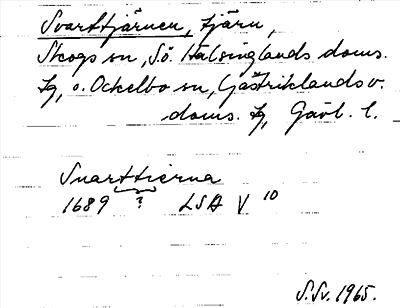 Svarttjärnen, tjärn,
Skogs sn, Sö. Hälsinglands doms.
tg, o. Ockelbo sn, Gästriklands v.
doms. tg, Gävl. l.
Suarttierna
1689 ? LSA V 10
S.Sv. 1965.